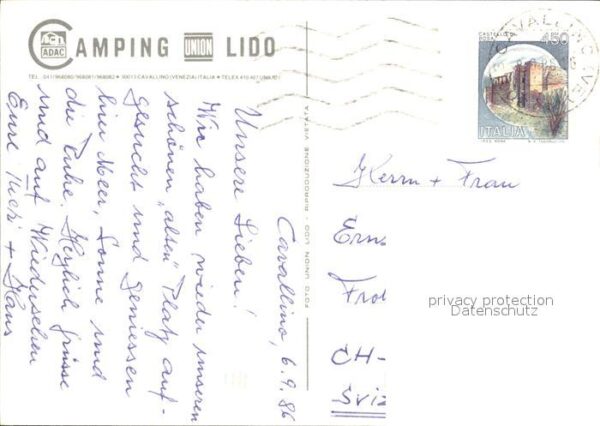 CAMPING UNION LIDO
ADAC
TEL. 041/968080/968081/968082 • 30013 CAVALLINO (VENEZIA) ITALIA • TELEX 410401
Cavallino, 6.9.86
Unsere Lieben!
Wir haben wieder unseren
schönen "alten" Platz auf-
gesucht und geniessen
hier Meer, Sonne und
die Ruhe. Herzlich Grüsse
und auf Wiedersehen
Eure + Hans
FOTO UNION LIDO - RIPRODUZIONE VIETATA
CASTELLO DI
ROCCA
450
ITALIA
CAVALLINO (VE)
Herrn + Frau
Erns
Fro
CH-
Sviz
privacy protection
Datenschutz